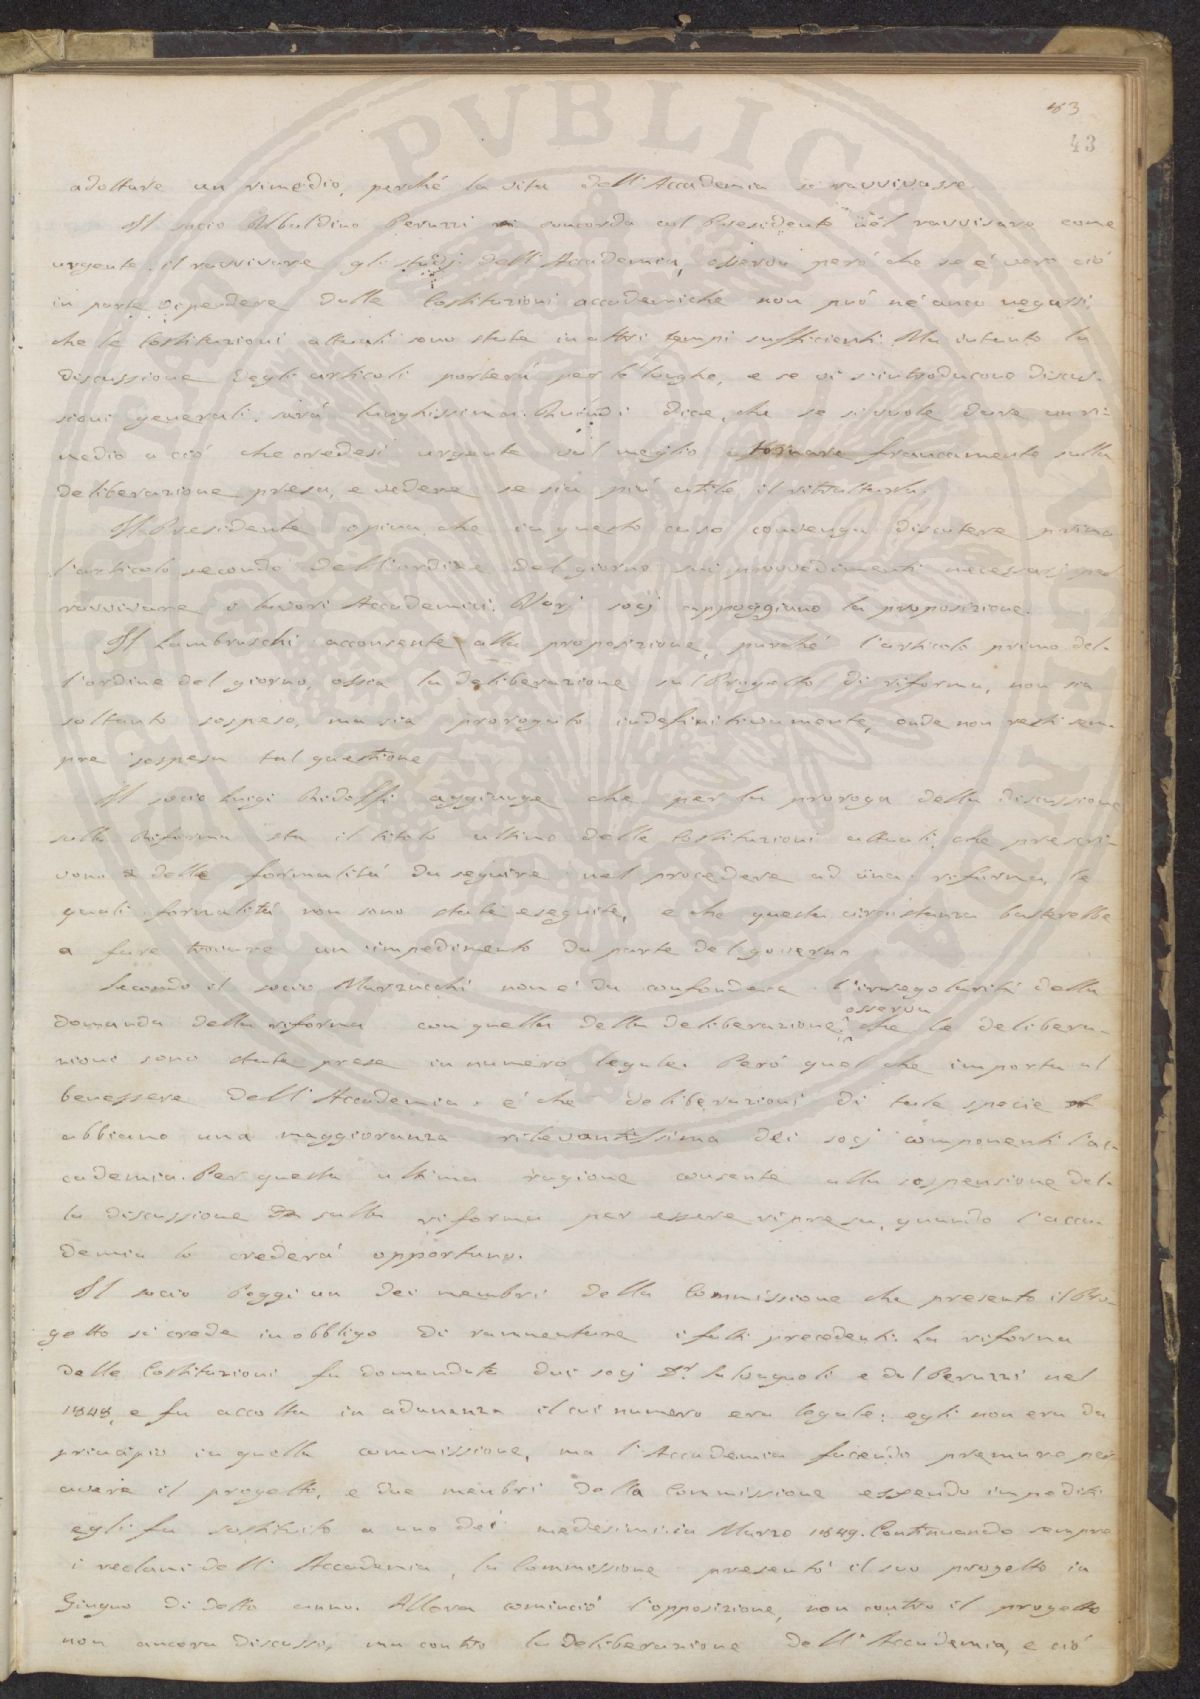 43
43
adottare un rimedio, perché la vita dell'Accademia si ravvivasse.
Il socio Ubaldino Peruzzi concorda col Presidente nel ravvisare come
urgente il ravvivare gli studj dell'Accademia, osserva peró che se é vero ció
in parte dipendere dalle Costituzioni accademiche non puó né anco negarsi,
che le Costituzioni attuali sono state in altri tempi sufficienti. Ma intanto la
discussione degli articoli porterá per le lunghe, e se vi s'introducono discus-
sioni generali, sará lunghissima. Quindi dice, che se si vuole dare un ri-
medio a ció che credesi urgente val meglio tornare francamente sulla
deliberazione presa, e vedere se sia piú utile il ritrattarla.
Il Presidente opina che in questo caso convenga discutere prima
l'articolo secondo dell'ordine del giorno sui provvedimenti necessarj per
ravvivare i lavori Accademici. Varj socj appoggiano la proposizione.
Il Lambruschi acconsente alla proposizione, purché l'articolo primo del-
l'ordine del giorno, ossia la deliberazione sul Progetto di riforma, non sia
soltanto sospeso, ma sia prorogato indefinitivamente, onde non resti sem-
pre sospesa tal questione
Il socio Luigi Ridolfi aggiunge che per la proroga della discussione
sulla Riforma sta il titolo ultimo delle Costituzioni attuali, che prescri-
vono delle formalitá da seguire nel procedere ad una riforma, le
quali formalitá non sono state eseguite, e che questa circostanza basterebbe
a fare trovare un impedimento da parte del governo
Secondo il socio Marzucchi non é da confondere l'irregolaritá della
domanda della riforma con quella della deliberazione; osserva che le delibera-
zioni sono state prese in numero legale. Peró quel che importa al
benessere dell'Accademia, é che deliberazioni di tale specie
abbiano una maggioranza rilevantissima dei socj componenti l'ac-
cademia. Per questa ultima ragione consente alla sospensione del-
la discussione sulla riforma per essere ripresa, quando l'acca-
demia lo crederá opportuno.
Il socio Poggi un dei membri della Commissione che presentò il Pro-
getto si crede in obbligo di rammentare i fatti precedenti. La riforma
delle Costituzioni fu domandata dai socj Dr. Salvagnoli e dal Peruzzi nel
1848, e fu accolta in adunanza il cui numero era legale: egli non era da
principio in quella commissione, ma l'Accademia facendo premure per
avere il progetto, e due membri della Commissione essendo impediti
egli fu sostituito a uno dei medesimi in Marzo 1849. Continuando sempre
i reclami dell'Accademia, la Commissione presentó il suo progetto in
Giugno di detto anno. Allora cominció l'opposizione, non contro il progetto
non ancora discusso, ma contro la deliberazione dell'Accademia, e ció